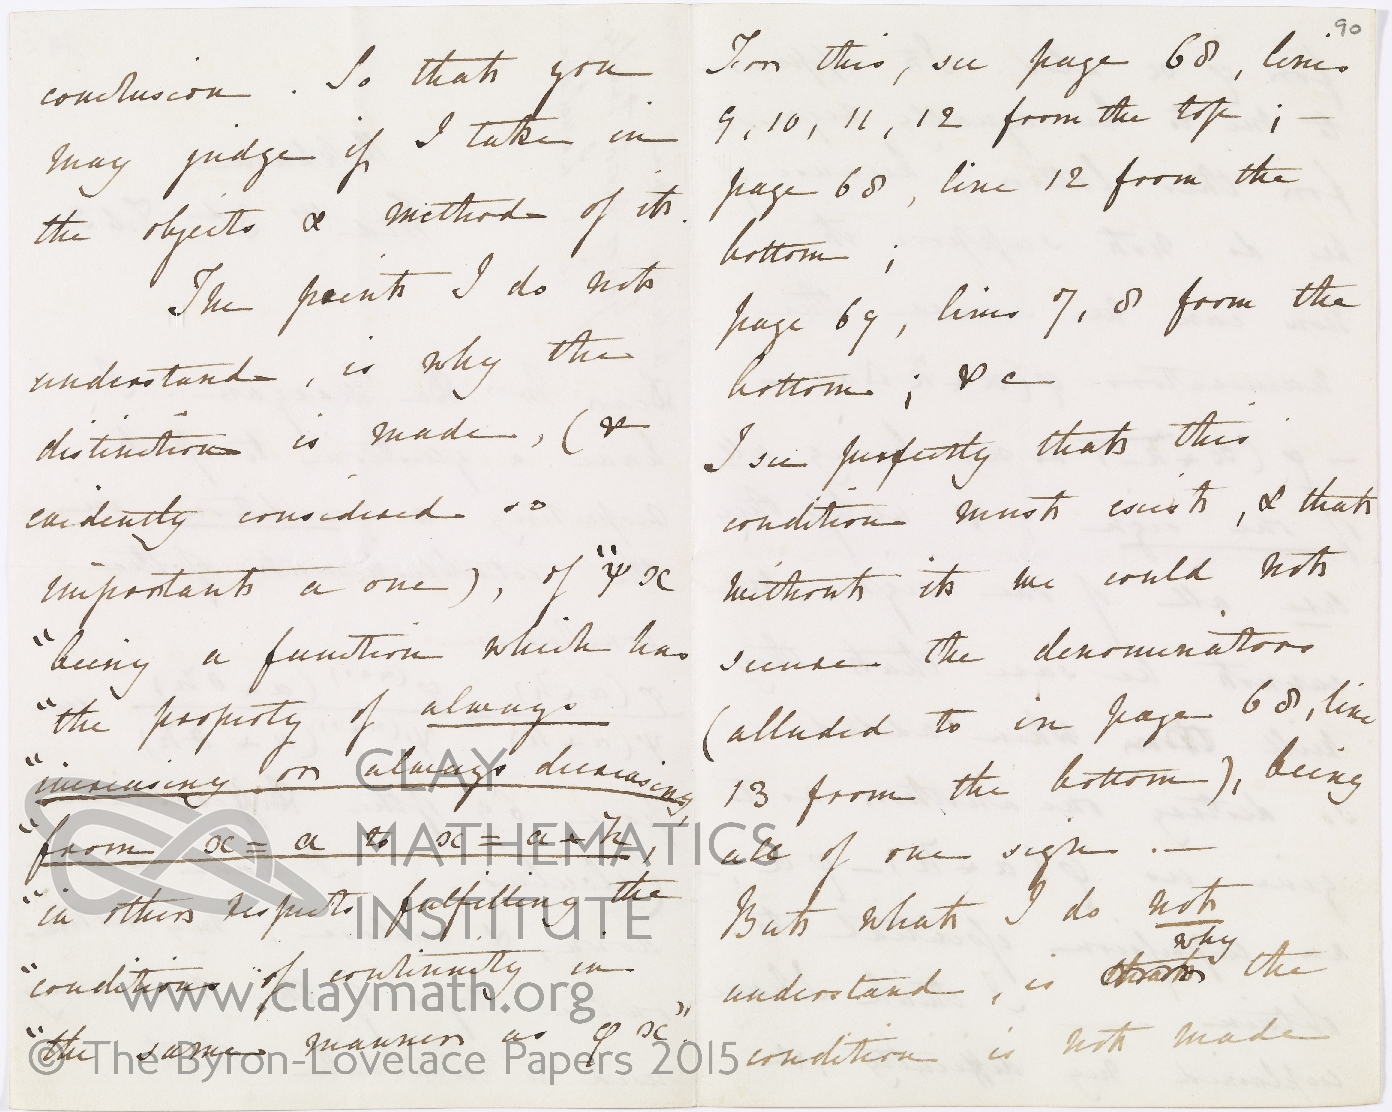 conclusion. So that you
may judge if I take in
the objects & method of it.
The point I do not
understand, is why the
distinction is made, (&
evidently considered so
important a one), of "ψx
"being a function which has
"the property of always
"increasing or always decreasing,
"from x = a to x = a + h,
"in other respects fulfilling the
"conditions of continuity in
"the same manner as φx".
90
For this, see page 68, lines
9, 10, 11, 12 from the top; —
page 68, line 12 from the
bottom;
page 69, lines 7, 8 from the
bottom; &c
I see perfectly that this
condition must exist, & that
without it we could not
secure the denominators
(alluded to in page 68, line
13 from the bottom), being
all of one sign. —
But what I do not
understand, is why the
condition is not made
CLAY
MATHEMATICS
INSTITUTE
www.claymath.org
© The Byron-Lovelace Papers 2015